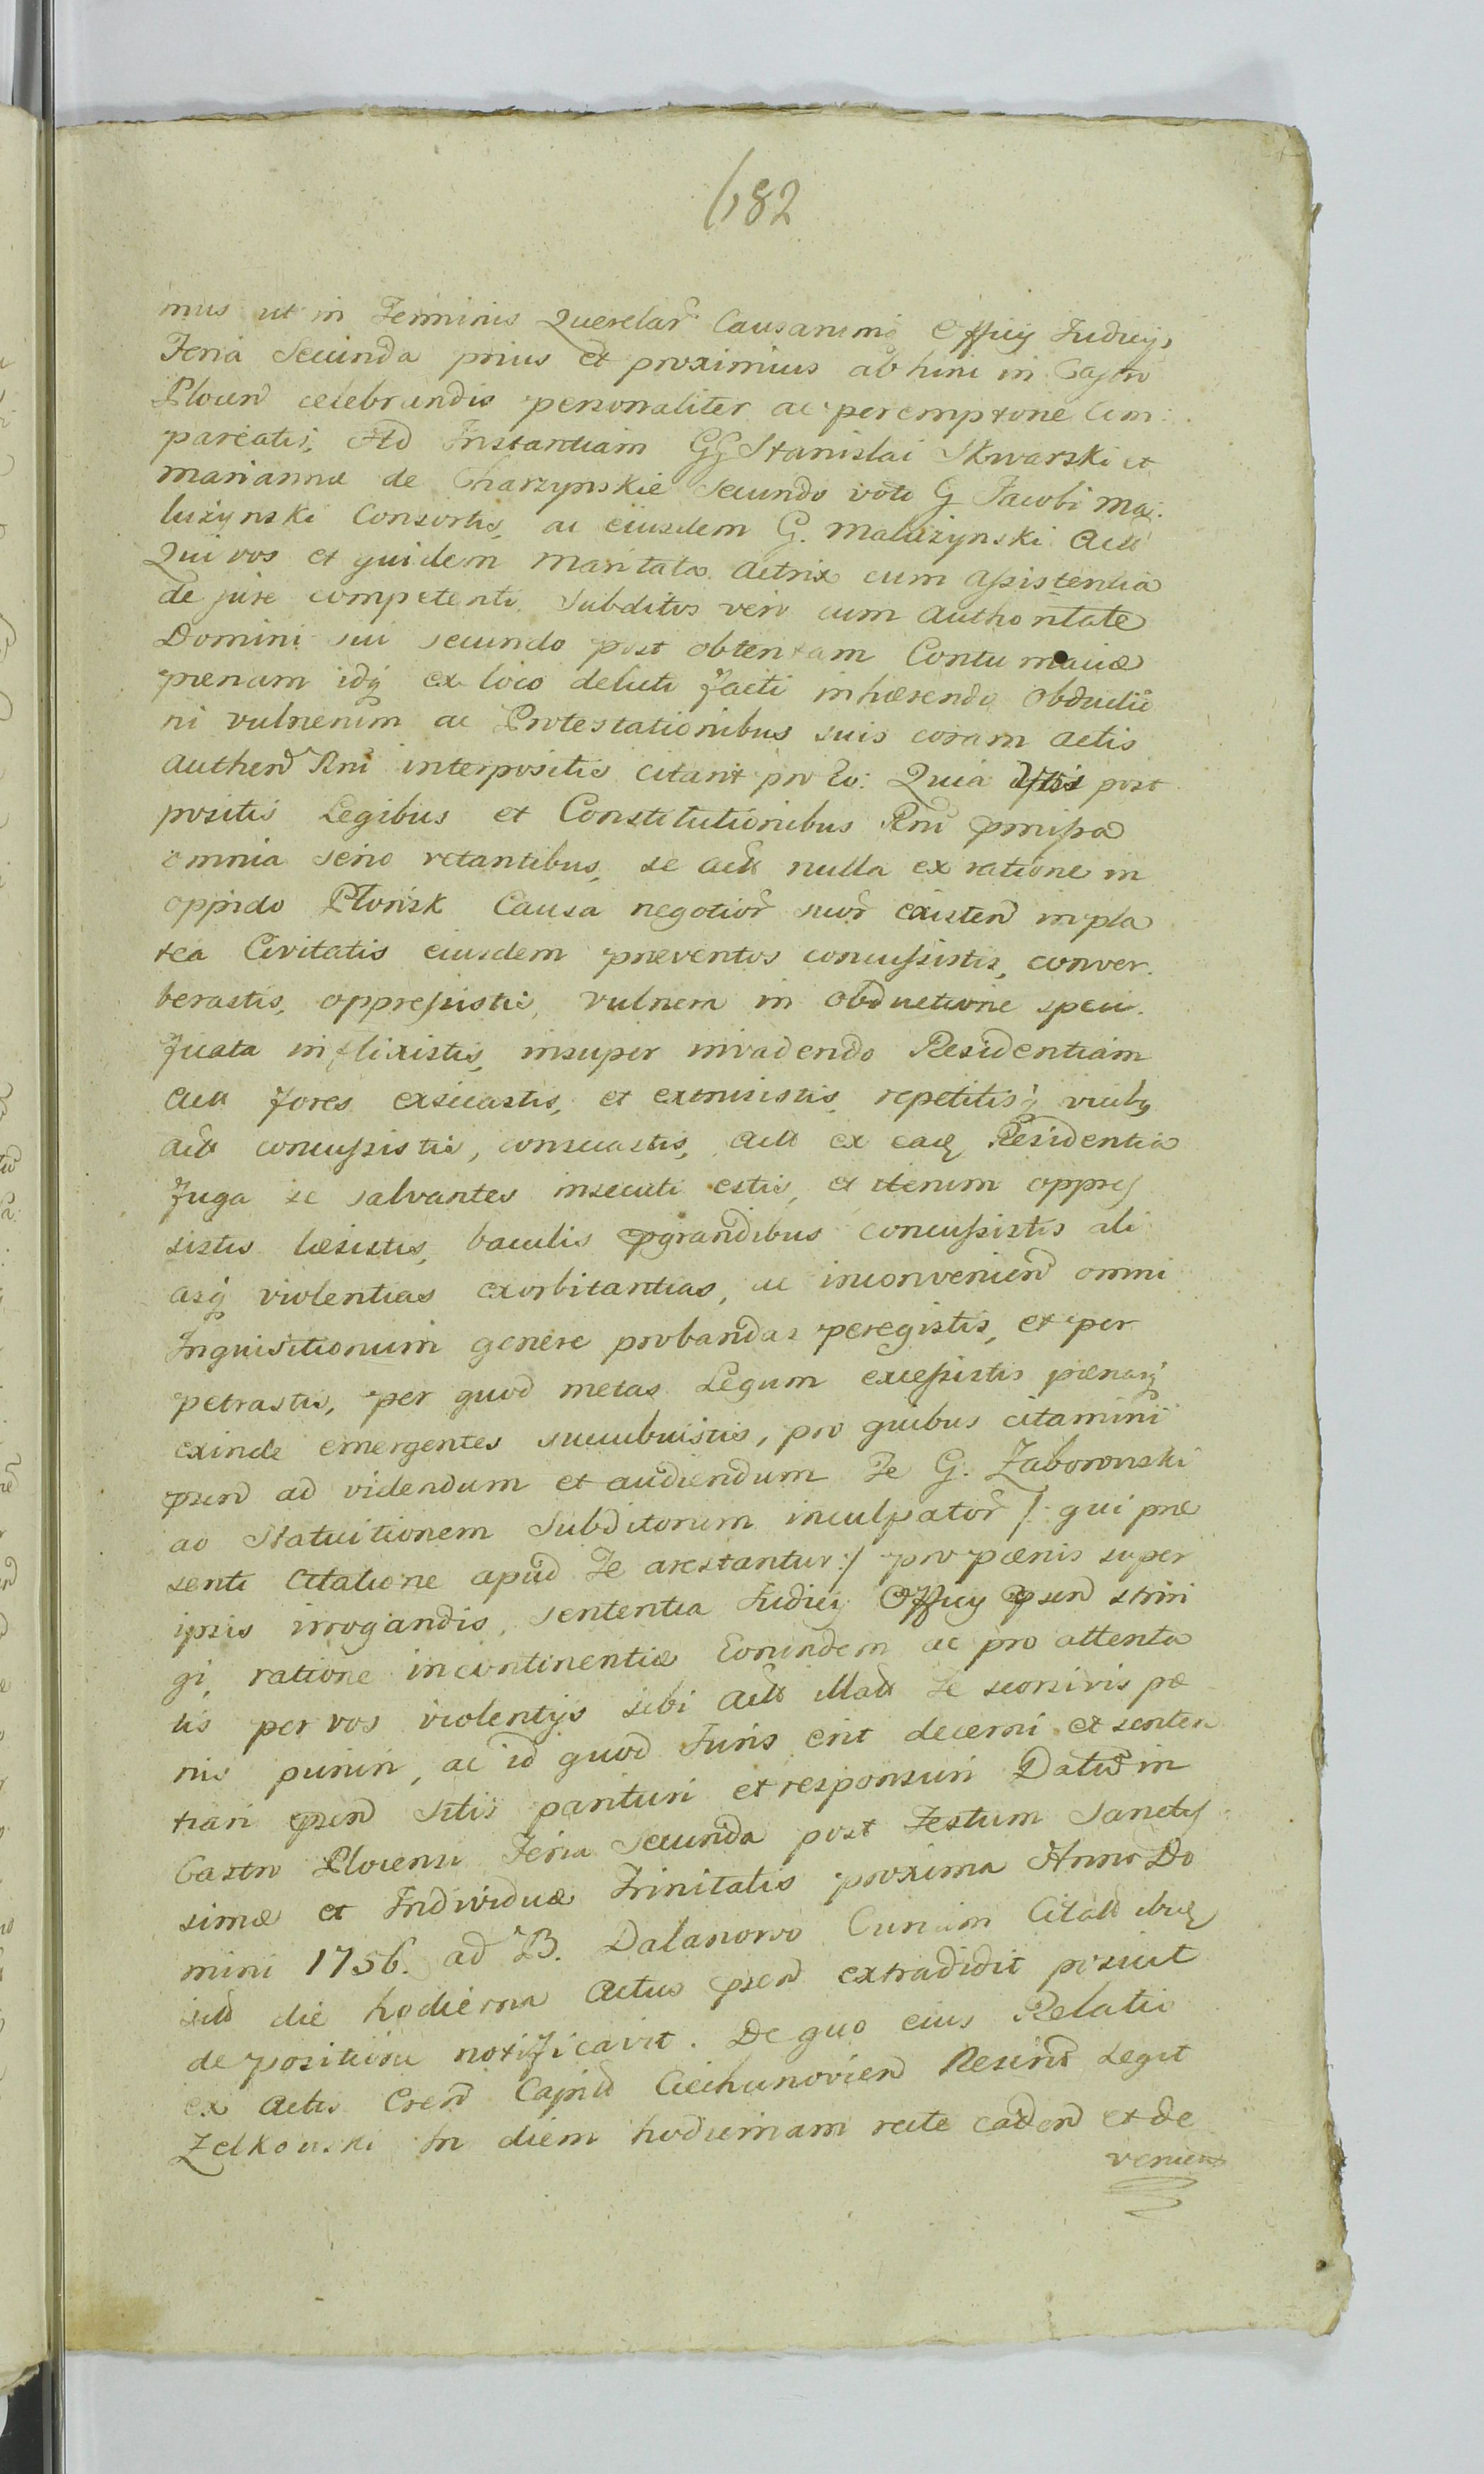 682
mus ut in Terminis Querelar Causarumq Officij Judicijs
Feria Secunda prius et proximius abhinc in Castro
Plocen celebrandis personaliter ac peremptorie Com:
pareatis, Ad Instantiam GG Stanislai Skwarski et
Marianna de Charzynskie secundo voto G Jacobi Ma:
luzynski Consortis, ac eiusdem G. Maluzynski Act
Qui vos et quidem Maritata Actrix cum Assistentia
de jure competenti Subditos vero cum Authoritate
Domini sui secundo post obtentam Contumaciæ
pœnam idq ex loco delicti facti inhærendo Obductio
ni vulnerum ac Protestationibus suis coram Actis
Authen Rni interpositis citant pro Eo: Quia Vos post
positis Legibus et Constitutionibus Rni pmissa
omnia serio vetantibus, se Act nulla ex ratione in
oppido Plonsk Causa negotior suor existen in pla
tea Civitatis eiusdem præventos concussistis, conver.
berastis, oppressistis, vulnera in obductione speci.
ficata inflixistis, insuper invadendo Residentiam
Act fores exsecastis, et extrusistis, repetitisq vicibq
Act concussistis, consecastis, Act ex eaq Residentia
fuga se salvantes insecuti estis, et iterum oppres
sistis læsistis, baculis pgrandibus concussistis ali
asq violentias exorbitantias, ac inconvenien omni
Inquisitionum genere probandas peregistis, et per
petrastis, per quod metas Legum excessistis pœnasq
exinde emergentes succubuistis, pro quibus citamini
psen ad videndum et audiendum Te G. Zaborowski
ad Statuitionem Subditorum inculpator /: qui præ
senti Citatione apud Te arestantur :/ pro pœnis super
ipsis irrogandis, sententia Judicij Officij psen strin
gi, ratione incontinentiæ Eorundem ac pro attenta
tis per vos violentijs sibi Act illatt se seorsivis pœ
nis puniri, ac id quod Juris erit decerni et senten
tiari psen sitis parituri et responsuri Datum in
Castro Plocensi Feria Secunda post Festum Sanctis
simæ et Individuæ Trinitatis proxima Anno Do
mini 1756. ad B. Dalanowo Curiam Citatt ibiq
sub die hodierna Actus psen extradidit posuit
de positione notificavit. De quo eius Relatio
ex Actis Cren Capit Ciechanovien Resind legit
Zelkowski In diem hodiernam recte caden et de
venien